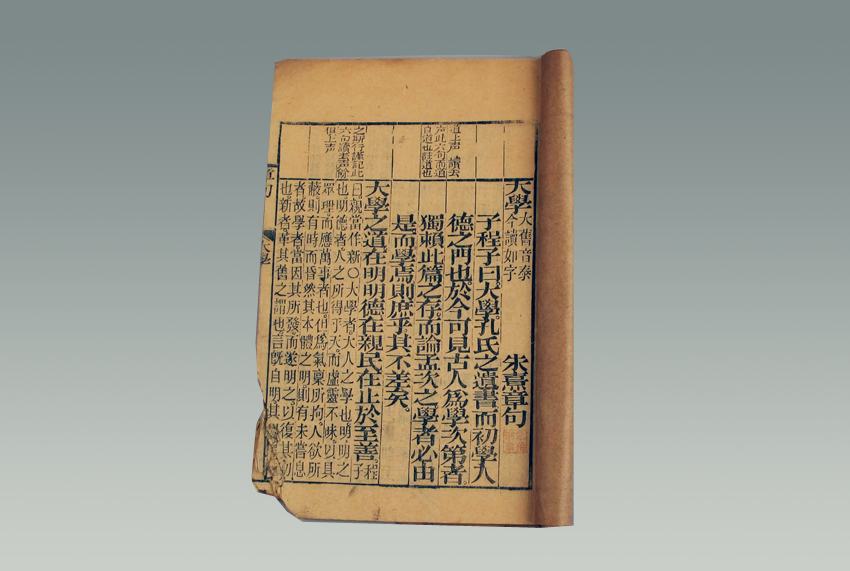 大學 大舊音泰
今讀如字
朱熹章句
子程子曰大學孔氏之遺書而初學入
德之門也於今可見古人為學次第者
獨賴此篇之存而論孟次之學者必由
是而學焉則庶乎其不差矣
大學之道在明明德在親民在止於至善 程子
曰親當作新〇大學者大人之學也明明之
也明德者人之所得乎天而虛靈不昧以具
眾理而應萬事者也但為氣稟所拘人欲所
蔽則有時而昏然其本體之明則有未嘗息
者故學者當因其所發而遂明之以復其初
也新者革其舊之謂也言既自明其
道上聲 讀去
声此六句而道
之所行謹記此
道上声
大學